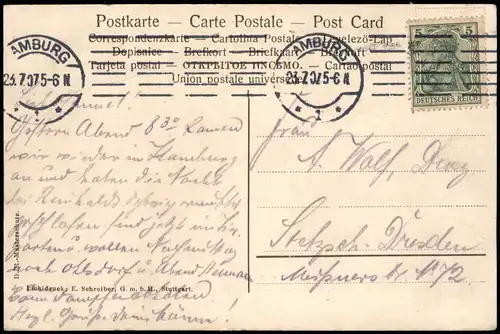 Postkarte – Carte Postale – Post Card
Correspondenzkarte – Cartolina Postale – Levelező-Lap
Dopisnice – Brefkort – Briefkaart
Tarjeta postal – ОТКРЫТОЕ ПИСЬМО. – Cartao postal
Union postale universelle
HAMBURG
23.7.07.5-6 N.
1
HAMBURG
23.7.07.5-6 N.
1
5 5
DEUTSCHES REICH
Gestern Abend 8 30 kamen
wir wieder in Hamburg
an und haben die Nacht
bei Reinholds
geschlafen sind jetzt im
wollen Nachmittag
noch Ohlsdorf u Abend
vom Dampfer abholen
Herzl. Grüße
Frau
A. Wolf,
Stetzsch-Dresden
Meissnerstr. No 72
Lichtdruck: E. Schreiber, G. m. b. H., Stuttgart.